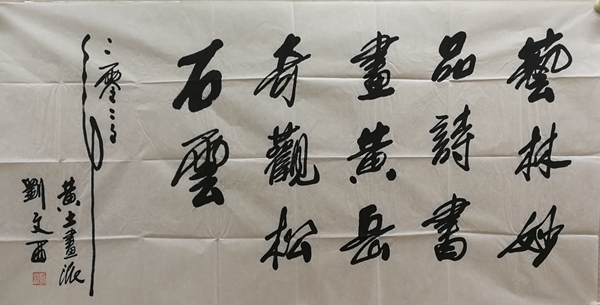 藝林妙
品詩書
畫黄岳
奇觀松
石雲
二零
年
黄土畫派
劉文西